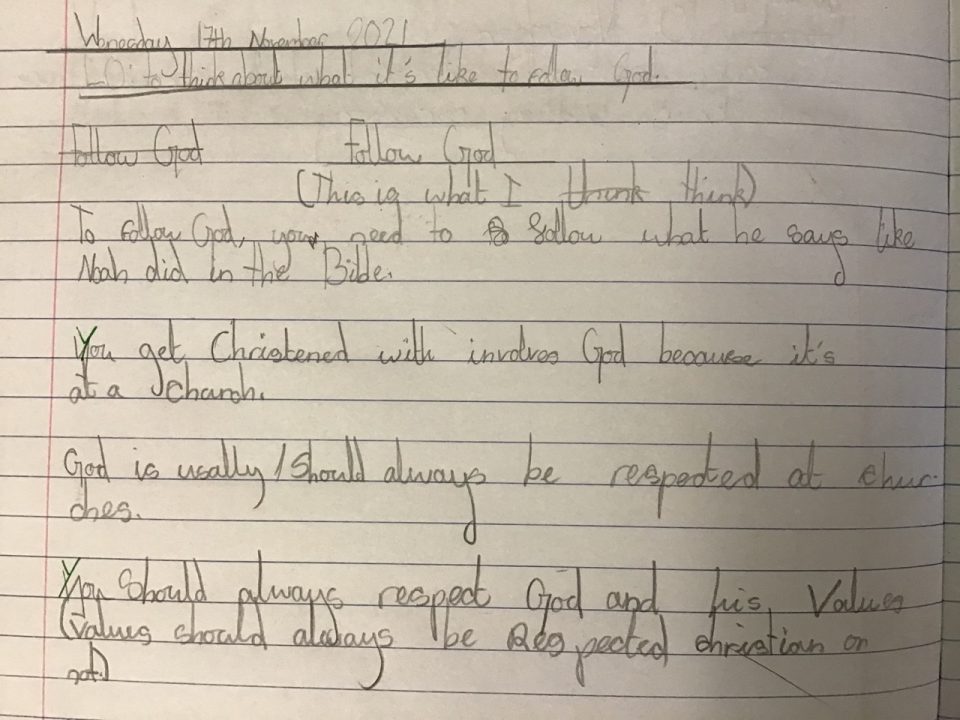 Wenesday 17th November 2021
LO: to think about what it's like to follow God.
Follow God Follow God
(This is what I thunk think)
To follow God, your need to follow what he says like
Noah did in the Bible.
You get Christened with involves God because it's
at a church.
God is usally/Should always be respected at chur-
ches.
You should always respect God and his values
(values should always be Respected christian or
not)